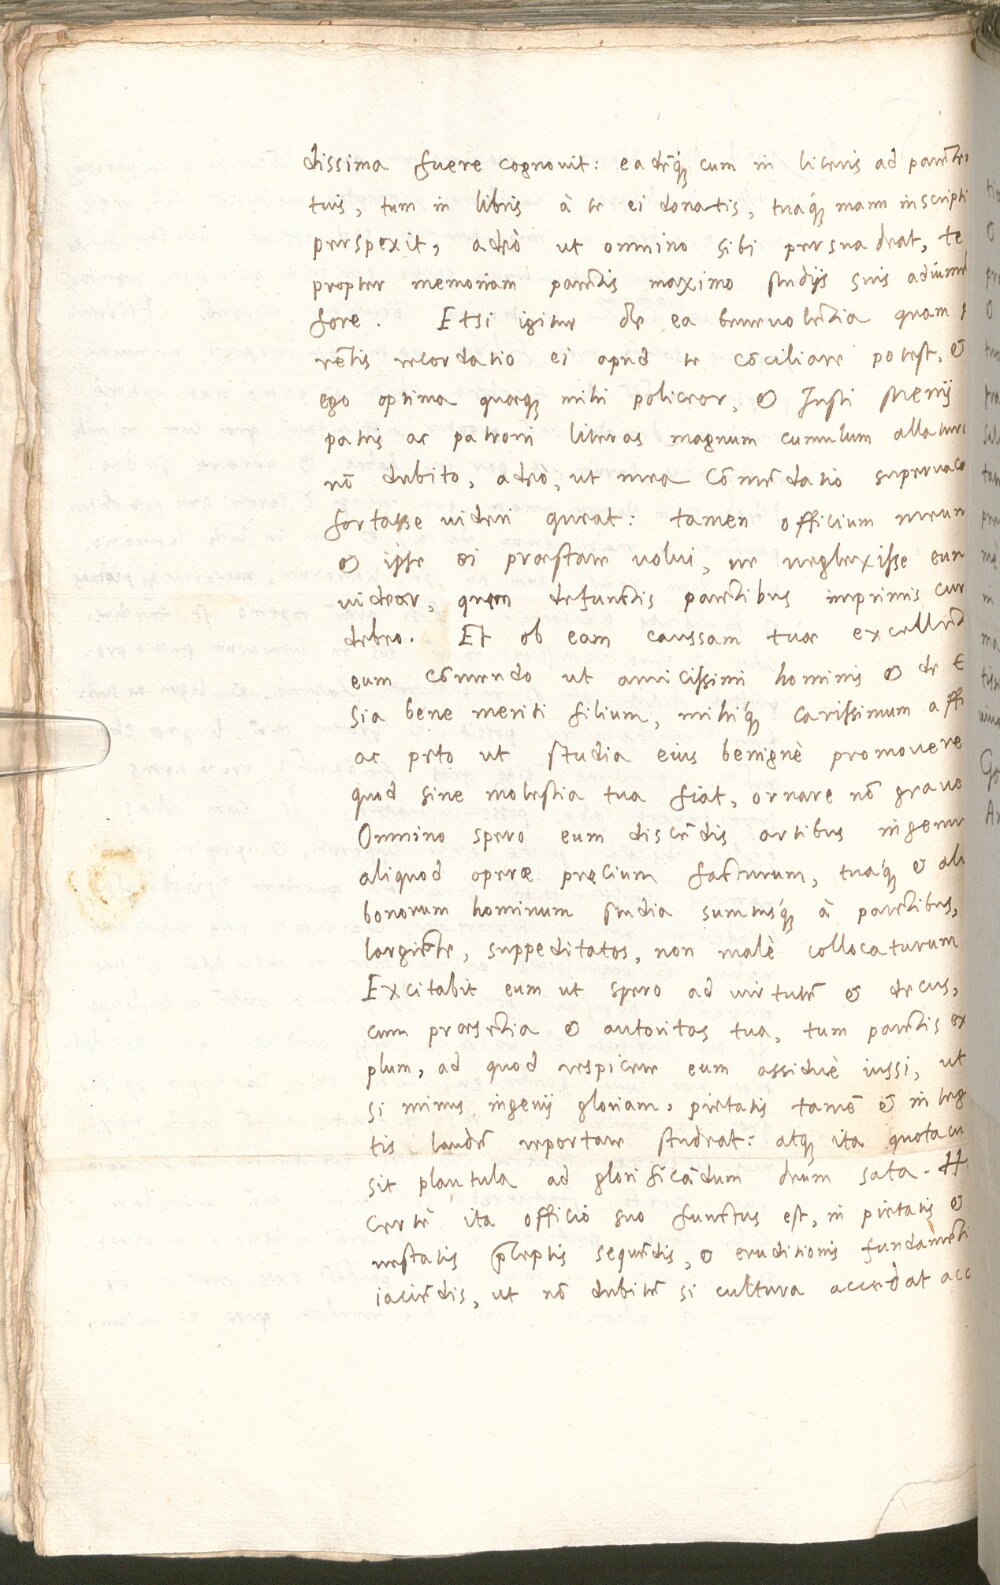 dissima fuere cognovit: eadēq́ȝ cum in literis ad parentē
tuis, tum in libris à te ei donatis, tuaq́ȝ manu inscripti
perspexit, adeò ut omnino sibi persuadeat, te
propter memoriam parētis maximo studijs suis adiumē
fore. Etsi igitur de ea benevolētia quam
rētis recordatio ei apud te cōciliare potest, &
ego optima quaeqȝ mihi policeor, & Justi
patris ac patroni literas magnum cumulum allatur
nō dubito, adeò, ut mea cōmēdatio supervaca
fortasse videri queat: tamen officium meum
& ipse ei præstare volui, ne neglexisse eum
videar, quem defunctis parētibus imprimis cur
debeo. Et ob eam caussam tuæ excellēt
eum cōmendo ut amicissimi hominis & de E
sia bene meriti filium, mihiq́ȝ carissimum affi
ac peto ut studia eius benignè promovere
quod sine molestia tua fiat, ornare nō grave
Omnino spero eum discēdis artibus ingenu
aliquod operæ precium facturum, tuaq́ȝ & ali
bonorum hominum studia sumtusq́ȝ à parētibus,
largiēte, suppeditatos, non malè collocaturum
Excitabit eum ut spero ad virtutē & decus,
cum præsētia & autoritas tua, tum parētis ex
plum, ad quod respicere eum assiduè iussi, ut
si minus ingenij gloriam, pietatis tamē & integ
tis laudē reportare studeat: atqȝ ita quotacu
sit plantula ad glorificādum deum sata. H
certè ita officio suo functus est, in pietatis &
nestatis p̄ceptis sequēdis, & eruditionis fundamēti
iaciēdis, ut nō dubitē si cultura accedat acc